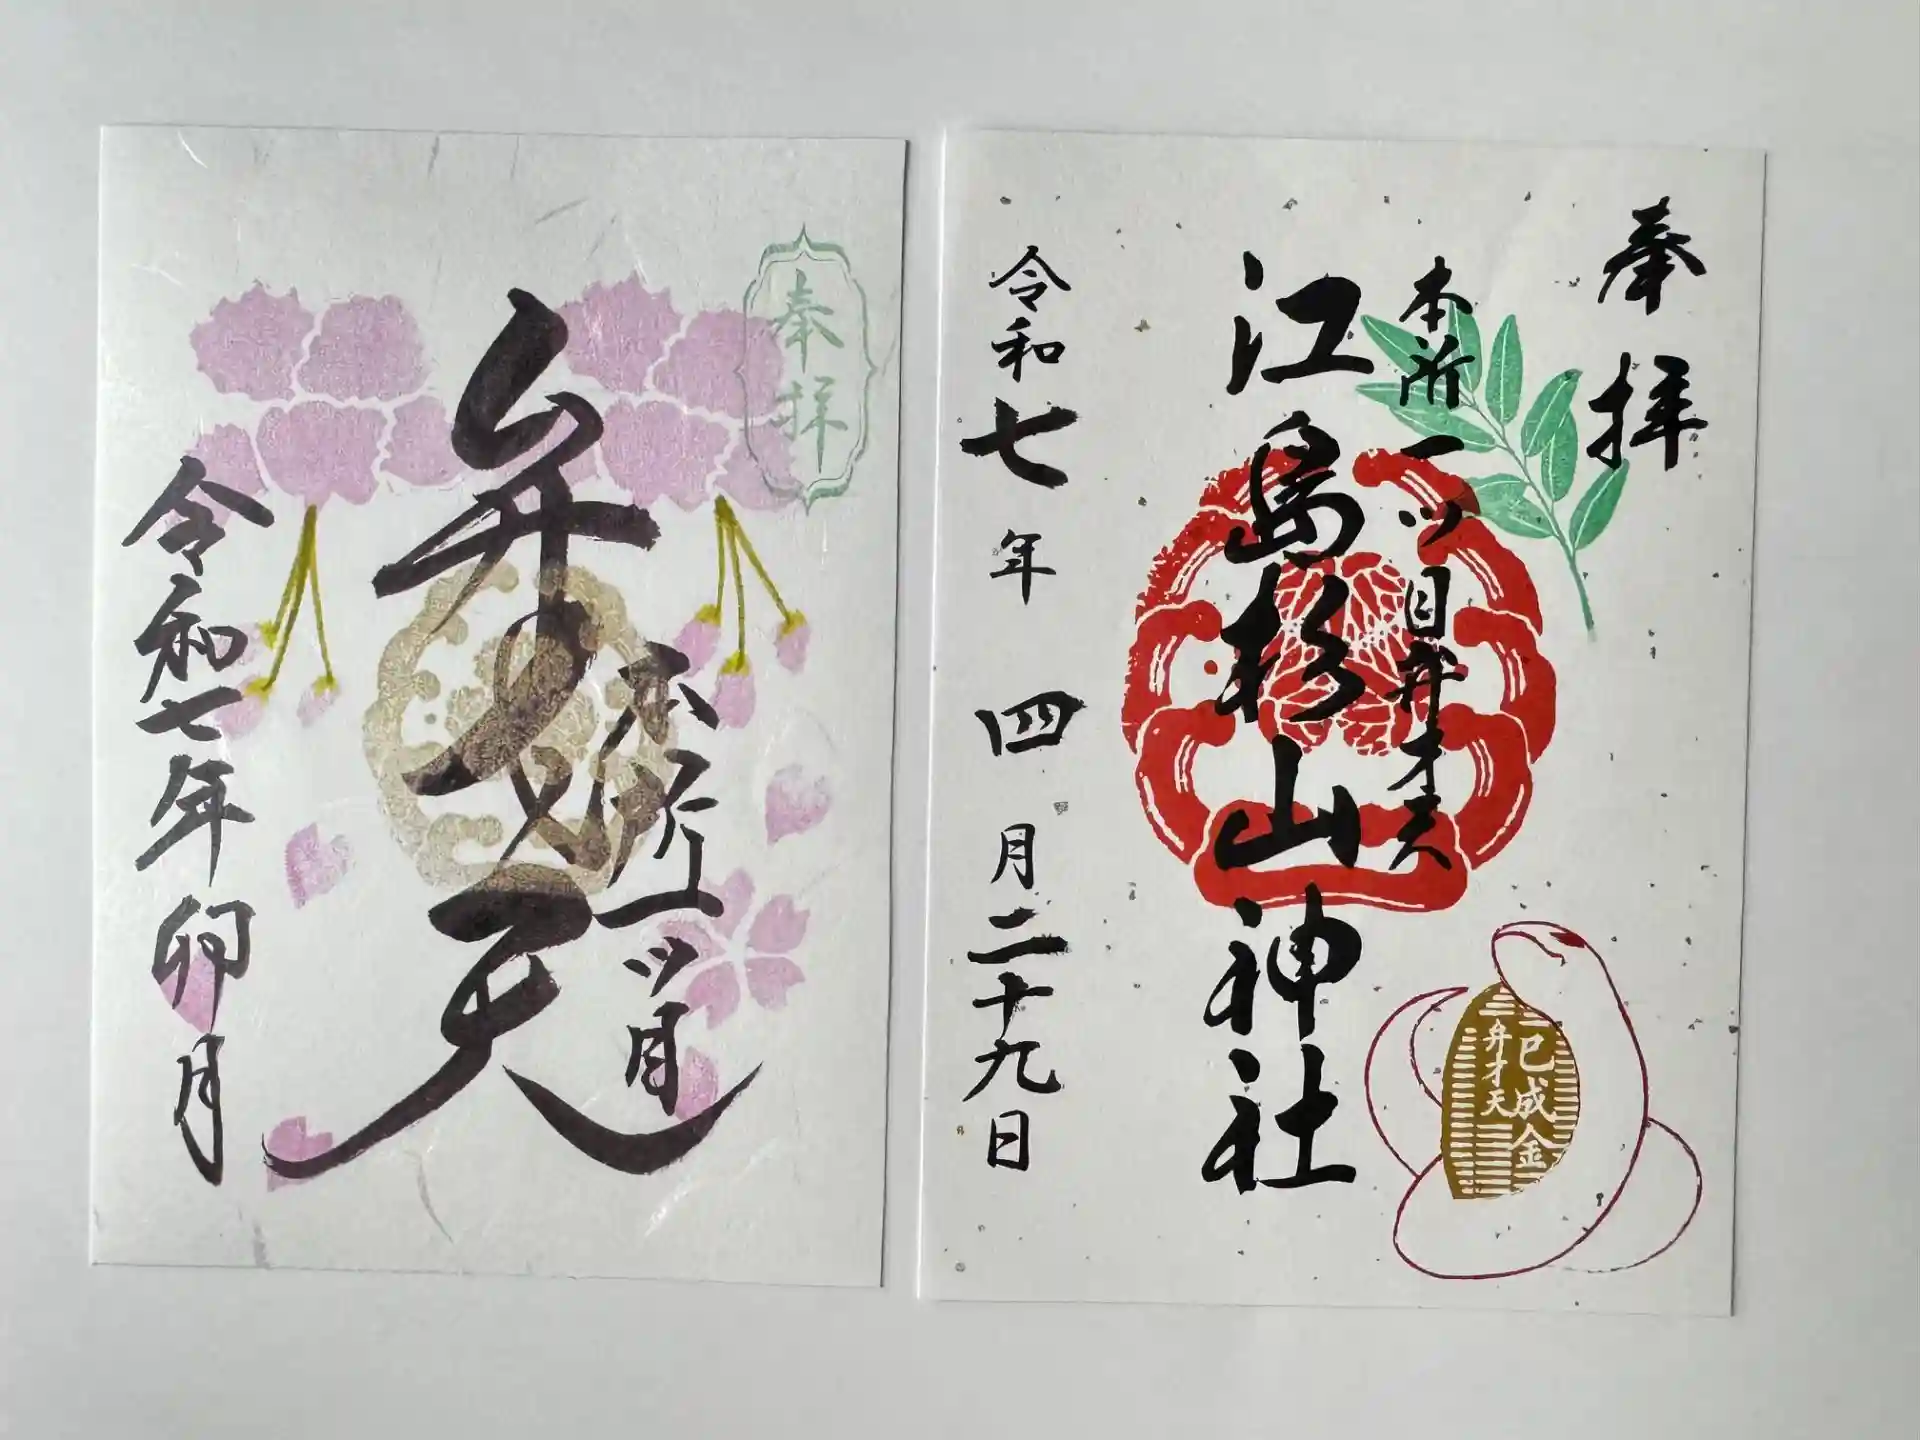 奉拝
本所一ッ目
弁才天
令和七年卯月
奉拝
本所一ッ目弁才天
江島杉山神社
令和七年四月二十九日
巳成金
弁才天